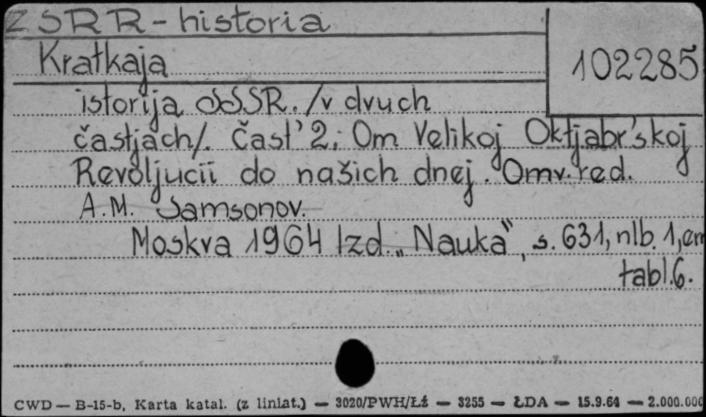 ZSRR - historia
102285
Kratkaja
istorija SSSR. /v dvuch
častjach/. Čast' 2; Om Velikoj Oktjabr'skoj
Revoljucii do našich dnej. Omv. red.
A.M. Samsonov.
Moskva 1964 Izd. „Nauka", s. 631, nlb. 1, em
tabl. 6.
CWD — B-15-b, Karta katal. (z liniat.) — 3020/PWH/Łź — 3255 — ŁDA — 15.9.64 — 2.000.000